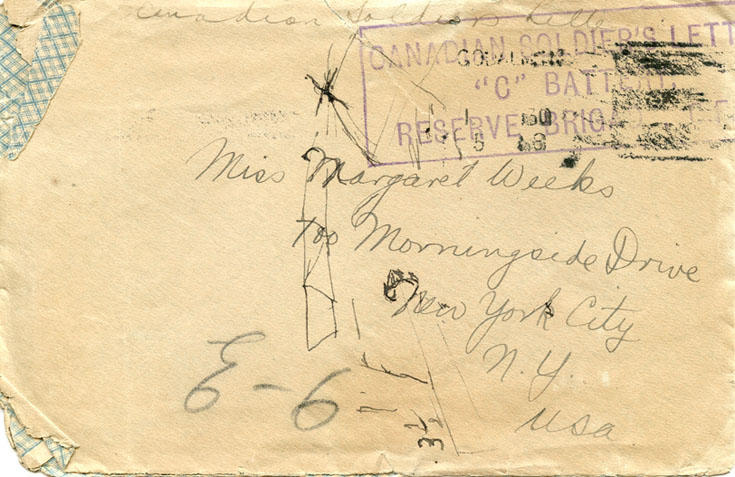 Canadian Soldiers Lette
CANADIAN SOLDIER'S LETT
GODALMING
"C" BATTE
RESERVE BRIGA
Miss Margaret Weeks
100 Morningside Drive
New York City
N.Y.
USA
E-6
3½